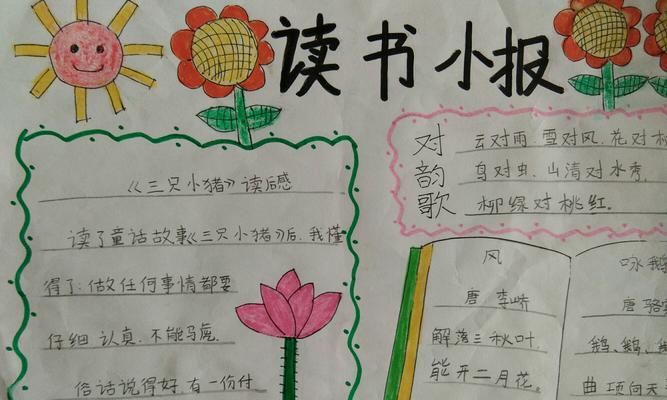 读书小报
《三只小猪》读后感
读了童话故事《三只小猪》后,我懂
得了:做任何事情都要
仔细 认真.不能马虎.
俗话说得好,有一份付
对韵歌
云对雨.雪对风.花对
鸟对虫.山清对水秀.
柳绿对桃红.
风
唐 李峤
解落三秋叶,
能开二月花。
咏鹅
唐 骆
鹅、鹅、
曲项向天